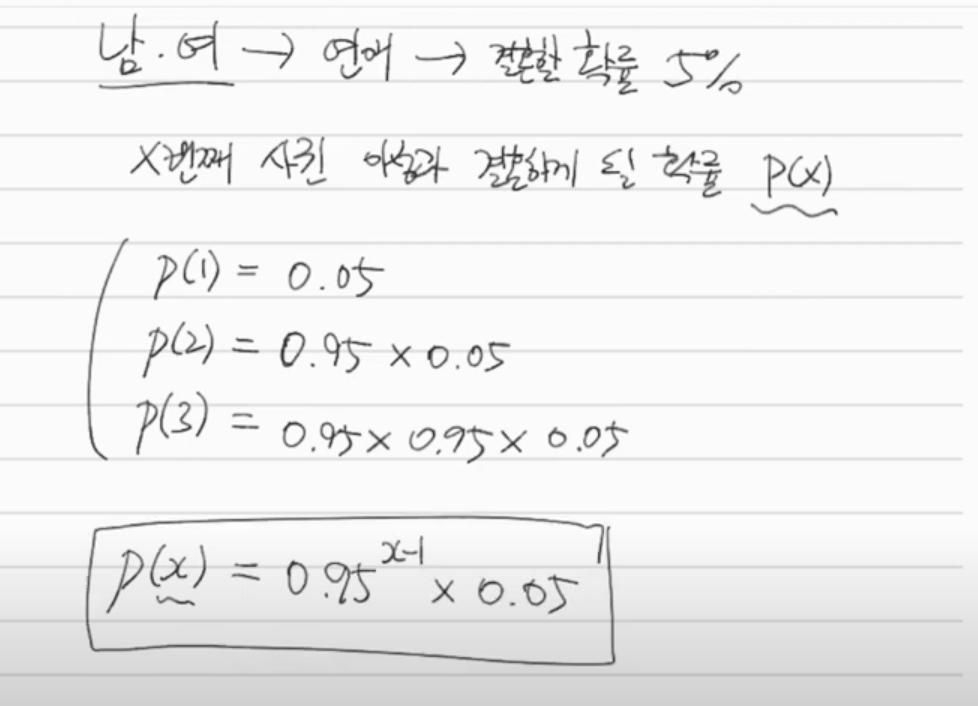 남.여 → 연애 → 결혼할 확률 5%
x번째 사귄 이성과 결혼하게 될 확률 P(x)
P(1) = 0.05
P(2) = 0.95 × 0.05
P(3) = 0.95 × 0.95 × 0.05
P(x) = 0.95^{x-1} × 0.05